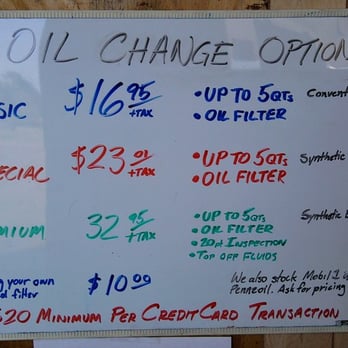 OIL CHANGE OPTION
SIC $16.95 +TAX • UP TO 5QTS Convent
• OIL FILTER
ECIAL $23.01 +TAX • UP TO 5QTS Synthetic
• OIL FILTER
MIUM 32.95 +TAX • UP TO 5QTS Synthetic
• OIL FILTER
• 20pt INSPECTION
• TOP OFF FLUIDS
g your own $10.00 We also stock Mobil 1
filter Pennzoil. Ask for pricing
$20 MINIMUM PER CREDIT CARD TRANSACTION